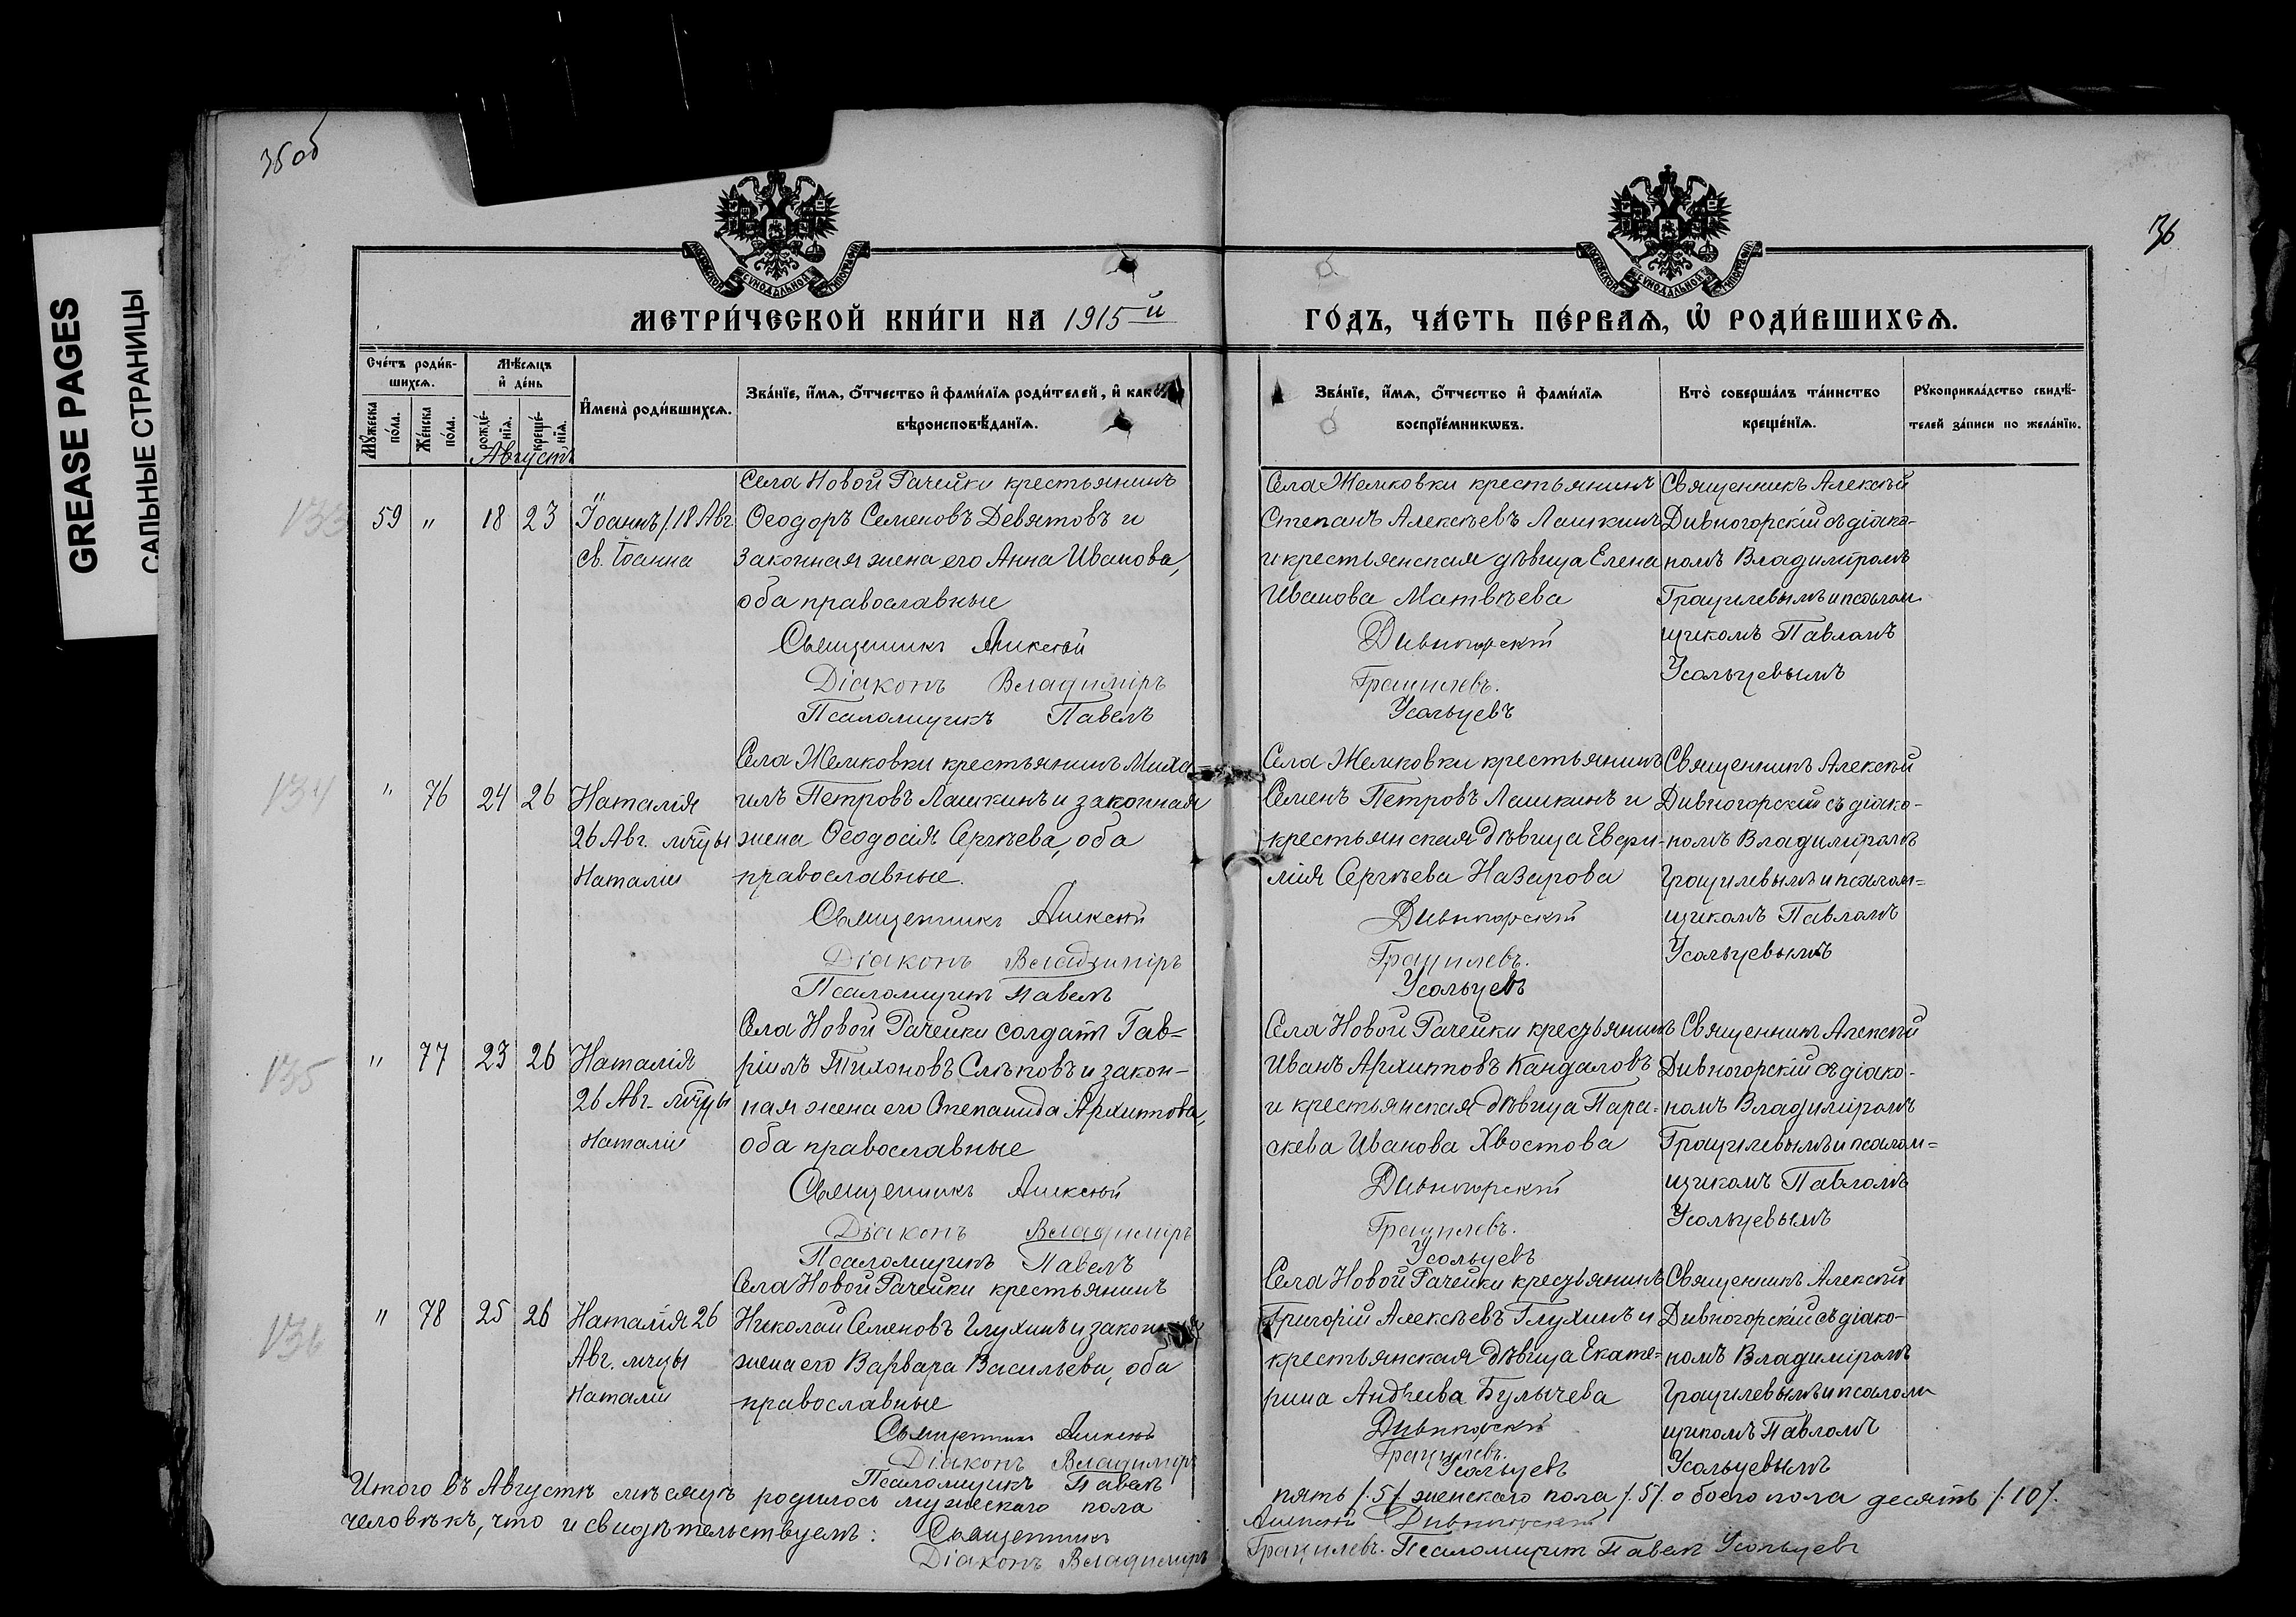 35об
36
GREASE PAGES
САЛЬНЫЕ СТРАНИЦЫ
МОСКОВСКОЙ СѴНОДАЛЬНОЙ ТИПОГРАФІИ
МОСКОВСКОЙ СѴНОДАЛЬНОЙ ТИПОГРАФІИ
МЕТРИ́ЧЕСКОЙ КНИ́ГИ НА 1915й
ГО́ДЪ, ЧА́СТЬ ПЕ́РВАѦ, Ѡ҆ РОДИ́ВШИХСѦ.
Сче́тъ роди́в-
шихсѧ.
Мѣ́сѧцъ
и҆ де́нь
Мꙋ́жеска
по́ла.
Же́нска
по́ла.
рожде́-
нїѧ.
креще́-
нїѧ.
И҆мена̀ роди́вшихсѧ.
Зва́нїе, и҆́мѧ, ѻ҆́тчество и҆ фами́лїѧ роди́телей, и҆ како́гѡ
вѣроисповѣ́данїѧ.
Зва́нїе, и҆́мѧ, ѻ҆́тчество и҆ фами́лїѧ
воспрїе́мникѡвъ.
Кто̀ соверша́лъ та́инство
креще́нїѧ.
Рꙋкоприкла́дство свидѣ́-
телей за́писи по жела́нїю.
Августъ
133
59 " 18 23
Іоаннъ /18 Авг.
св. Іоанна
Села Новой Рачейки крестьянинъ
Ѳеодоръ Семеновъ Девятовъ и
законная жена его Анна Иванова,
оба православные
Священникъ Алексѣй
Діаконъ Владиміръ
Псаломщикъ Павелъ
Села Жемковки крестьянинъ
Степанъ Алексѣевъ Лашкинъ
и крестьянская дѣвица Елена
Иванова Матвѣева
Дивногорскій
Грацилевъ.
Усольцевъ
Священникъ Алексѣй
Дивногорскій съ діако-
номъ Владиміромъ
Грацилевымъ и псалом
щикомъ Павломъ
Усольцевымъ
134
" 76 24 26
Наталія
26 Авг. мчцы
Наталіи
Села Жемковки крестьянинъ Миха
илъ Петровъ Лашкинъ и законная
жена Ѳеодосія Сергѣева, оба
православные.
Священникъ Алексѣй
Діаконъ Владиміръ
Псаломщикъ Павелъ
Села Жемковки крестьянинъ
Семенъ Петровъ Лашкинъ и
крестьянская дѣвица
Сергѣева Назарова
Дивногорскій
Грацилевъ.
Усольцевъ
Священникъ Алексѣй
Дивногорскій съ діако-
номъ Владиміромъ
Грацилевымъ и псалом=
щикомъ Павломъ
Усольцевымъ
135
" 77 23 26
Наталія
26 Авг. мчцы
Наталіи
Села Новой Рачейки солдатъ Гав=
ріилъ Тихоновъ и закон-
ная жена его Степанида Архипова,
оба православные
Священникъ Алексѣй
Діаконъ Владиміръ
Псаломщикъ Павелъ
Села Новой Рачейки крестьянинъ
Иванъ Архиповъ Кандаловъ
и крестьянская дѣвица Пара-
скева Иванова Хвостова
Дивногорскій
Грацилевъ.
Усольцевъ
Священникъ Алексѣй
Дивногорскій съ діако-
номъ Владиміромъ
Грацилевымъ и псалом=
щикомъ Павломъ
Усольцевымъ
136
" 78 25 26
Наталія 26
Авг. мчцы
Наталіи
Села Новой Рачейки крестьянинъ
Николай Семеновъ Глухинъ и
жена его Варвара Васильева, оба
православные
Священникъ Алексѣй
Діаконъ Владиміръ
Псаломщикъ Павелъ
Села Новой Рачейки крестьянинъ
Григорій Алексѣевъ Глухинъ и
крестьянская дѣвица Екате=
рина Андреева Булычева
Дивногорскій
Грацилевъ.
Усольцевъ
Священникъ Алексѣй
Дивногорскій съ діако-
номъ Владиміромъ
Грацилевымъ и псалом
щикомъ Павломъ
Усольцевымъ
Итого въ Августѣ мѣсяцѣ родилось мужескаго пола пять /.5/ женскаго пола /.5/. обоего пола десять /.10/.
человѣкъ, что и свидѣтельствуемъ: Священникъ Алексѣй Дивногорскій
Діаконъ Владиміръ Грацилевъ. Псаломщикъ Павелъ Усольцевъ